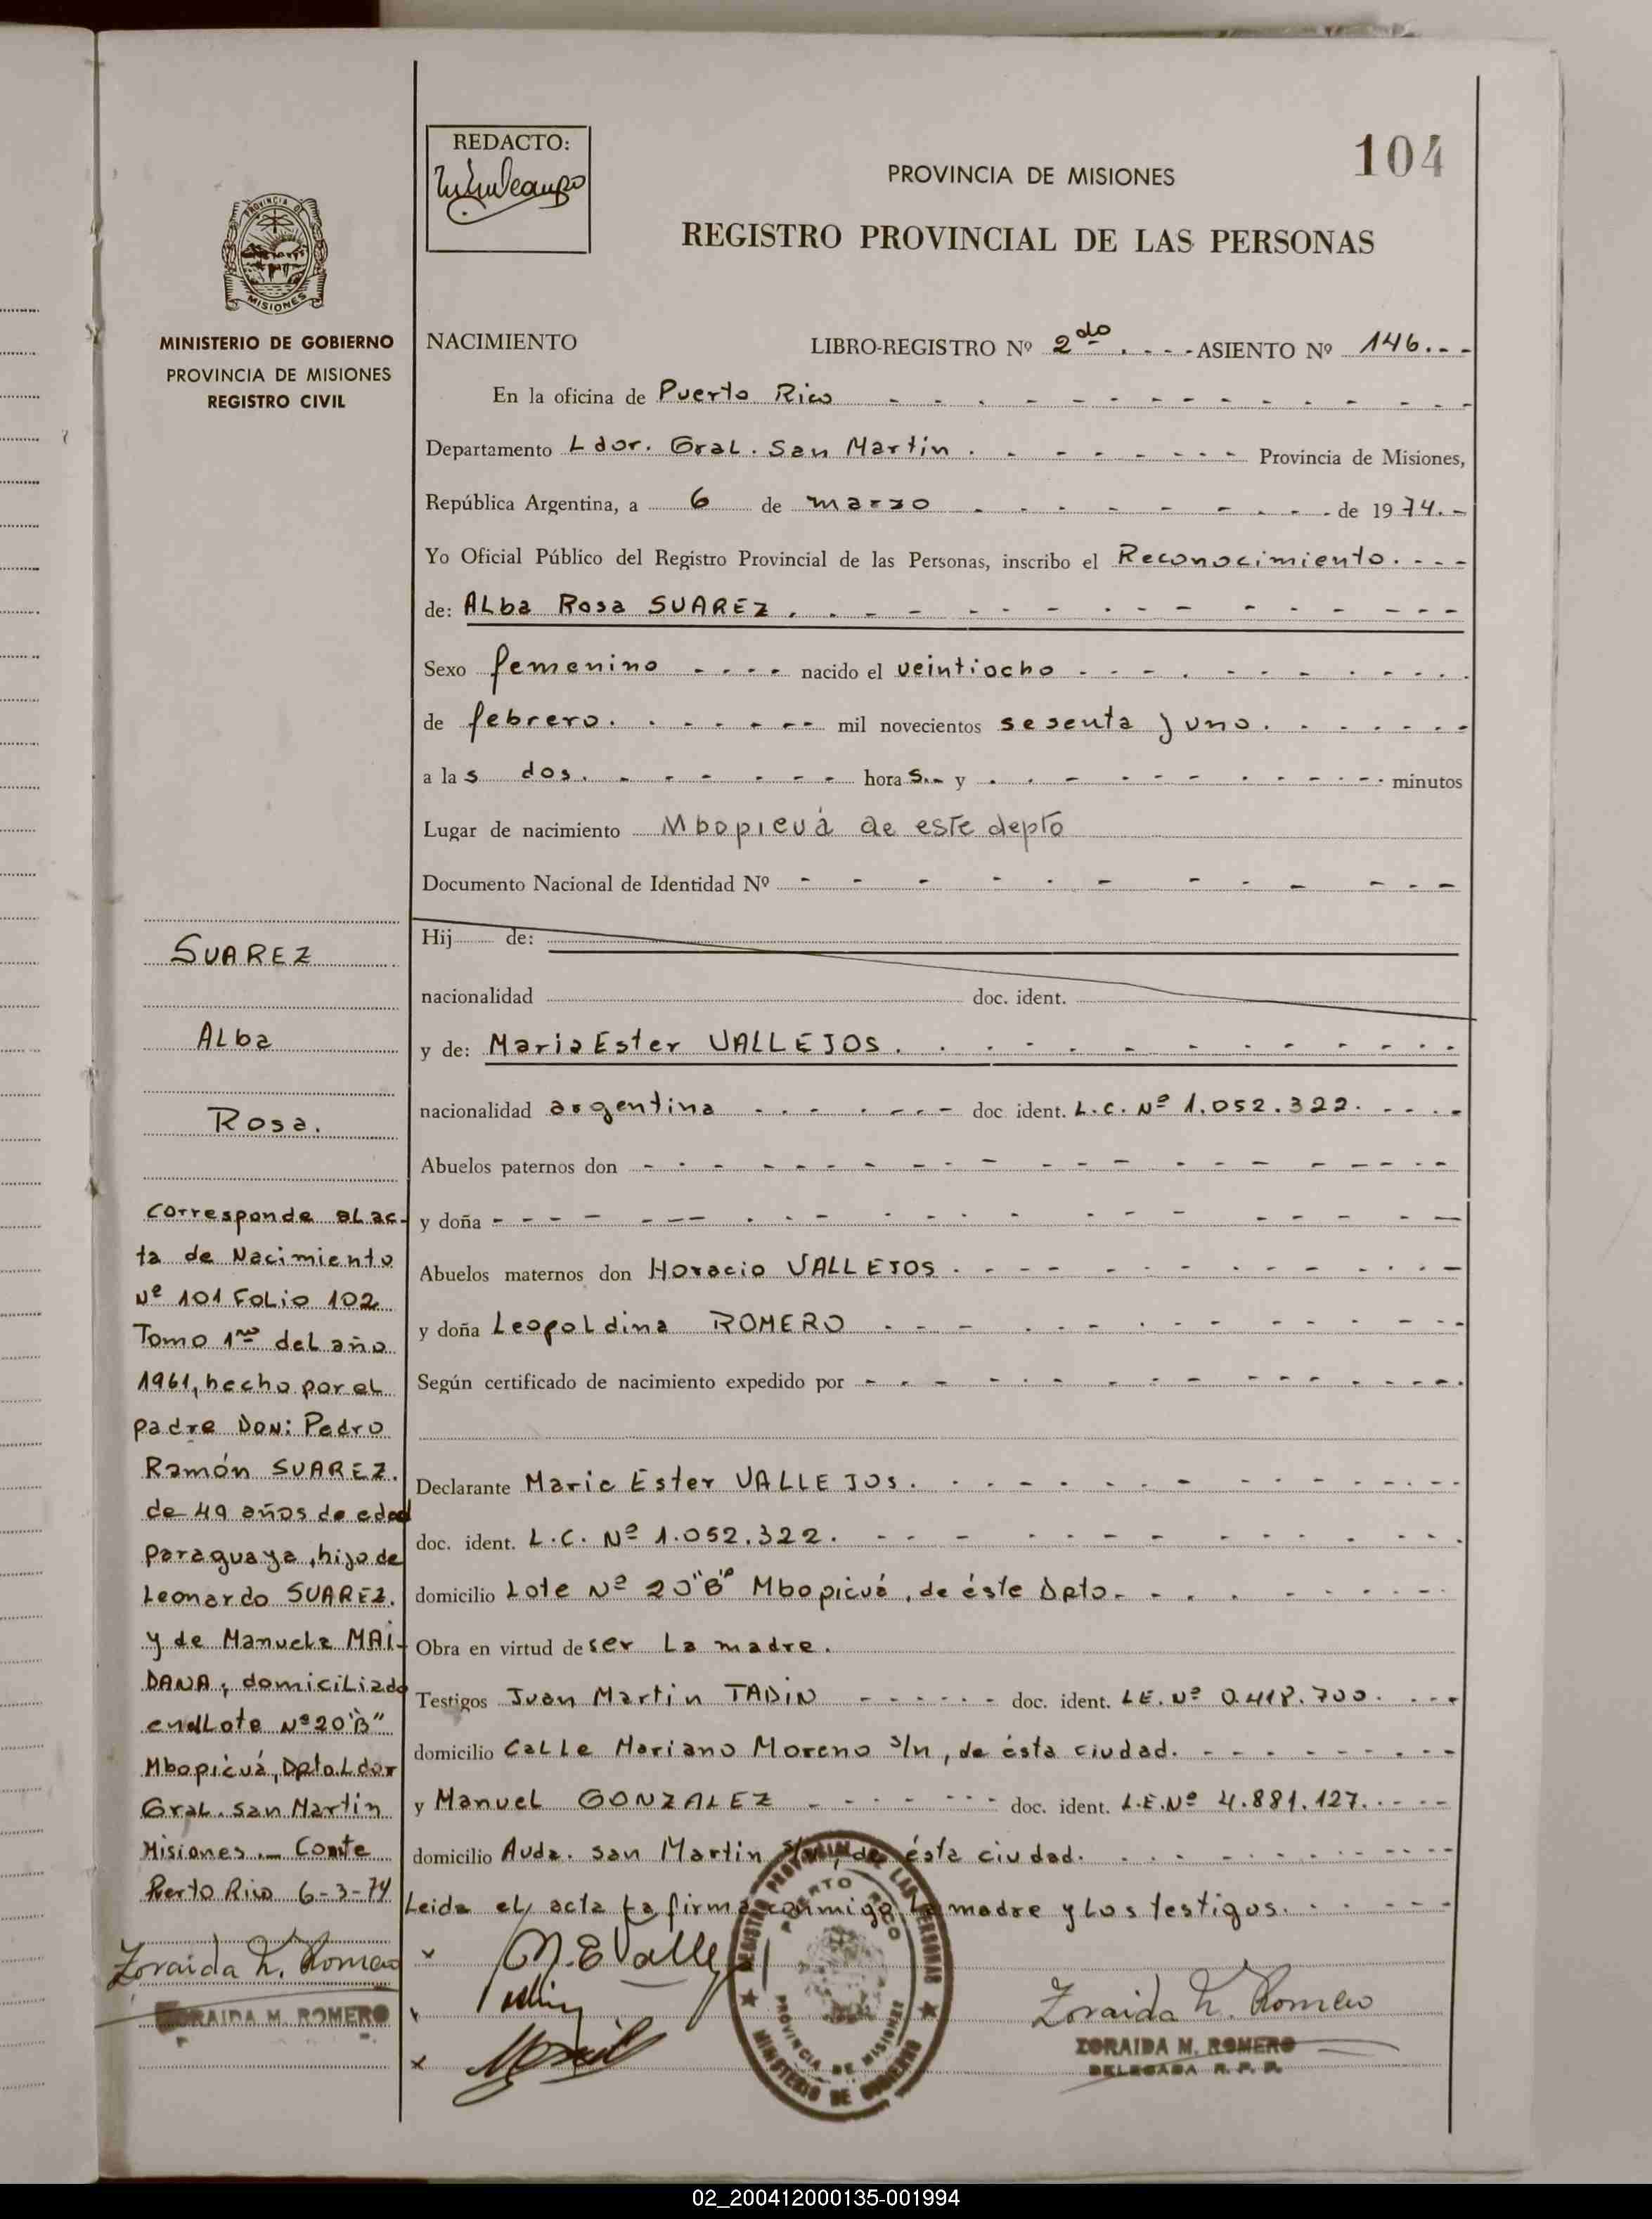 REDACTO:
104
PROVINCIA DE MISIONES
REGISTRO PROVINCIAL DE LAS PERSONAS
PROVINCIA DE
MISIONES
MINISTERIO DE GOBIERNO
PROVINCIA DE MISIONES
REGISTRO CIVIL
NACIMIENTO LIBRO-REGISTRO Nº 2do. - - - ASIENTO Nº 146. - -
En la oficina de Puerto Rico
Departamento Ldor. Gral. San Martín. Provincia de Misiones,
República Argentina, a 6 de marzo de 1974. -
Yo Oficial Público del Registro Provincial de las Personas, inscribo el Reconocimiento. - - -
de: ALba Rosa SUAREZ.
Sexo femenino - - - - nacido el veintiocho
de febrero. mil novecientos sesenta y uno.
a las dos. horas.- y minutos
Lugar de nacimiento Mbopicuá de este depto
Documento Nacional de Identidad Nº
Hij de:
nacionalidad doc. ident.
y de: Maria Ester VALLEJOS.
nacionalidad argentina doc. ident. L.C. Nº 1.052.322.
Abuelos paternos don
y doña
Abuelos maternos don Horacio VALLEJOS.
y doña LeopoLdina ROMERO
Según certificado de nacimiento expedido por
Declarante Maria Ester VALLEJOS.
doc. ident. L.C. Nº 1.052.322.
domicilio Lote Nº 20"B" Mbopicuá, de éste Dpto.
Obra en virtud de ser La madre.
Testigos Juan Martin TADIN doc. ident. LE. Nº 0.418.700.
domicilio CaLLe Mariano Moreno s/n, de ésta ciudad.
y ManueL GONZALEZ doc. ident. L.E. Nº 4.881.127.
domicilio Avda. San Martin s/n, de ésta ciudad.
Leida el acta La firma conmigo La madre y Los testigos.
M. E Valle
Zoraida M. Romero
ZORAIDA M. ROMERO
DELEGADA R. P. P.
REGISTRO PROVINCIAL DE LAS PERSONAS
PUERTO RICO
PROVINCIA DE MISIONES
MINISTERIO DE GOBIERNO
SUAREZ
ALba
Rosa.
Corresponde aL ac-
ta de Nacimiento
Nº 101 FoLio 102
Tomo 1ro del año
1961, hecho por eL
padre DON: Pedro
Ramón SUAREZ.
de 49 años de edad
paraguaya, hijo de
Leonardo SUAREZ.
y de ManueLa MAI-
DANA, domiciLiado
en eL Lote Nº 20"B"
Mbopicuá, Dpto. Ldor
Gral. San Martin
Misiones.- Conste
Puerto Rico 6-3-74
Zoraida M. Romero
ZORAIDA M. ROMERO
02_200412000135-001994